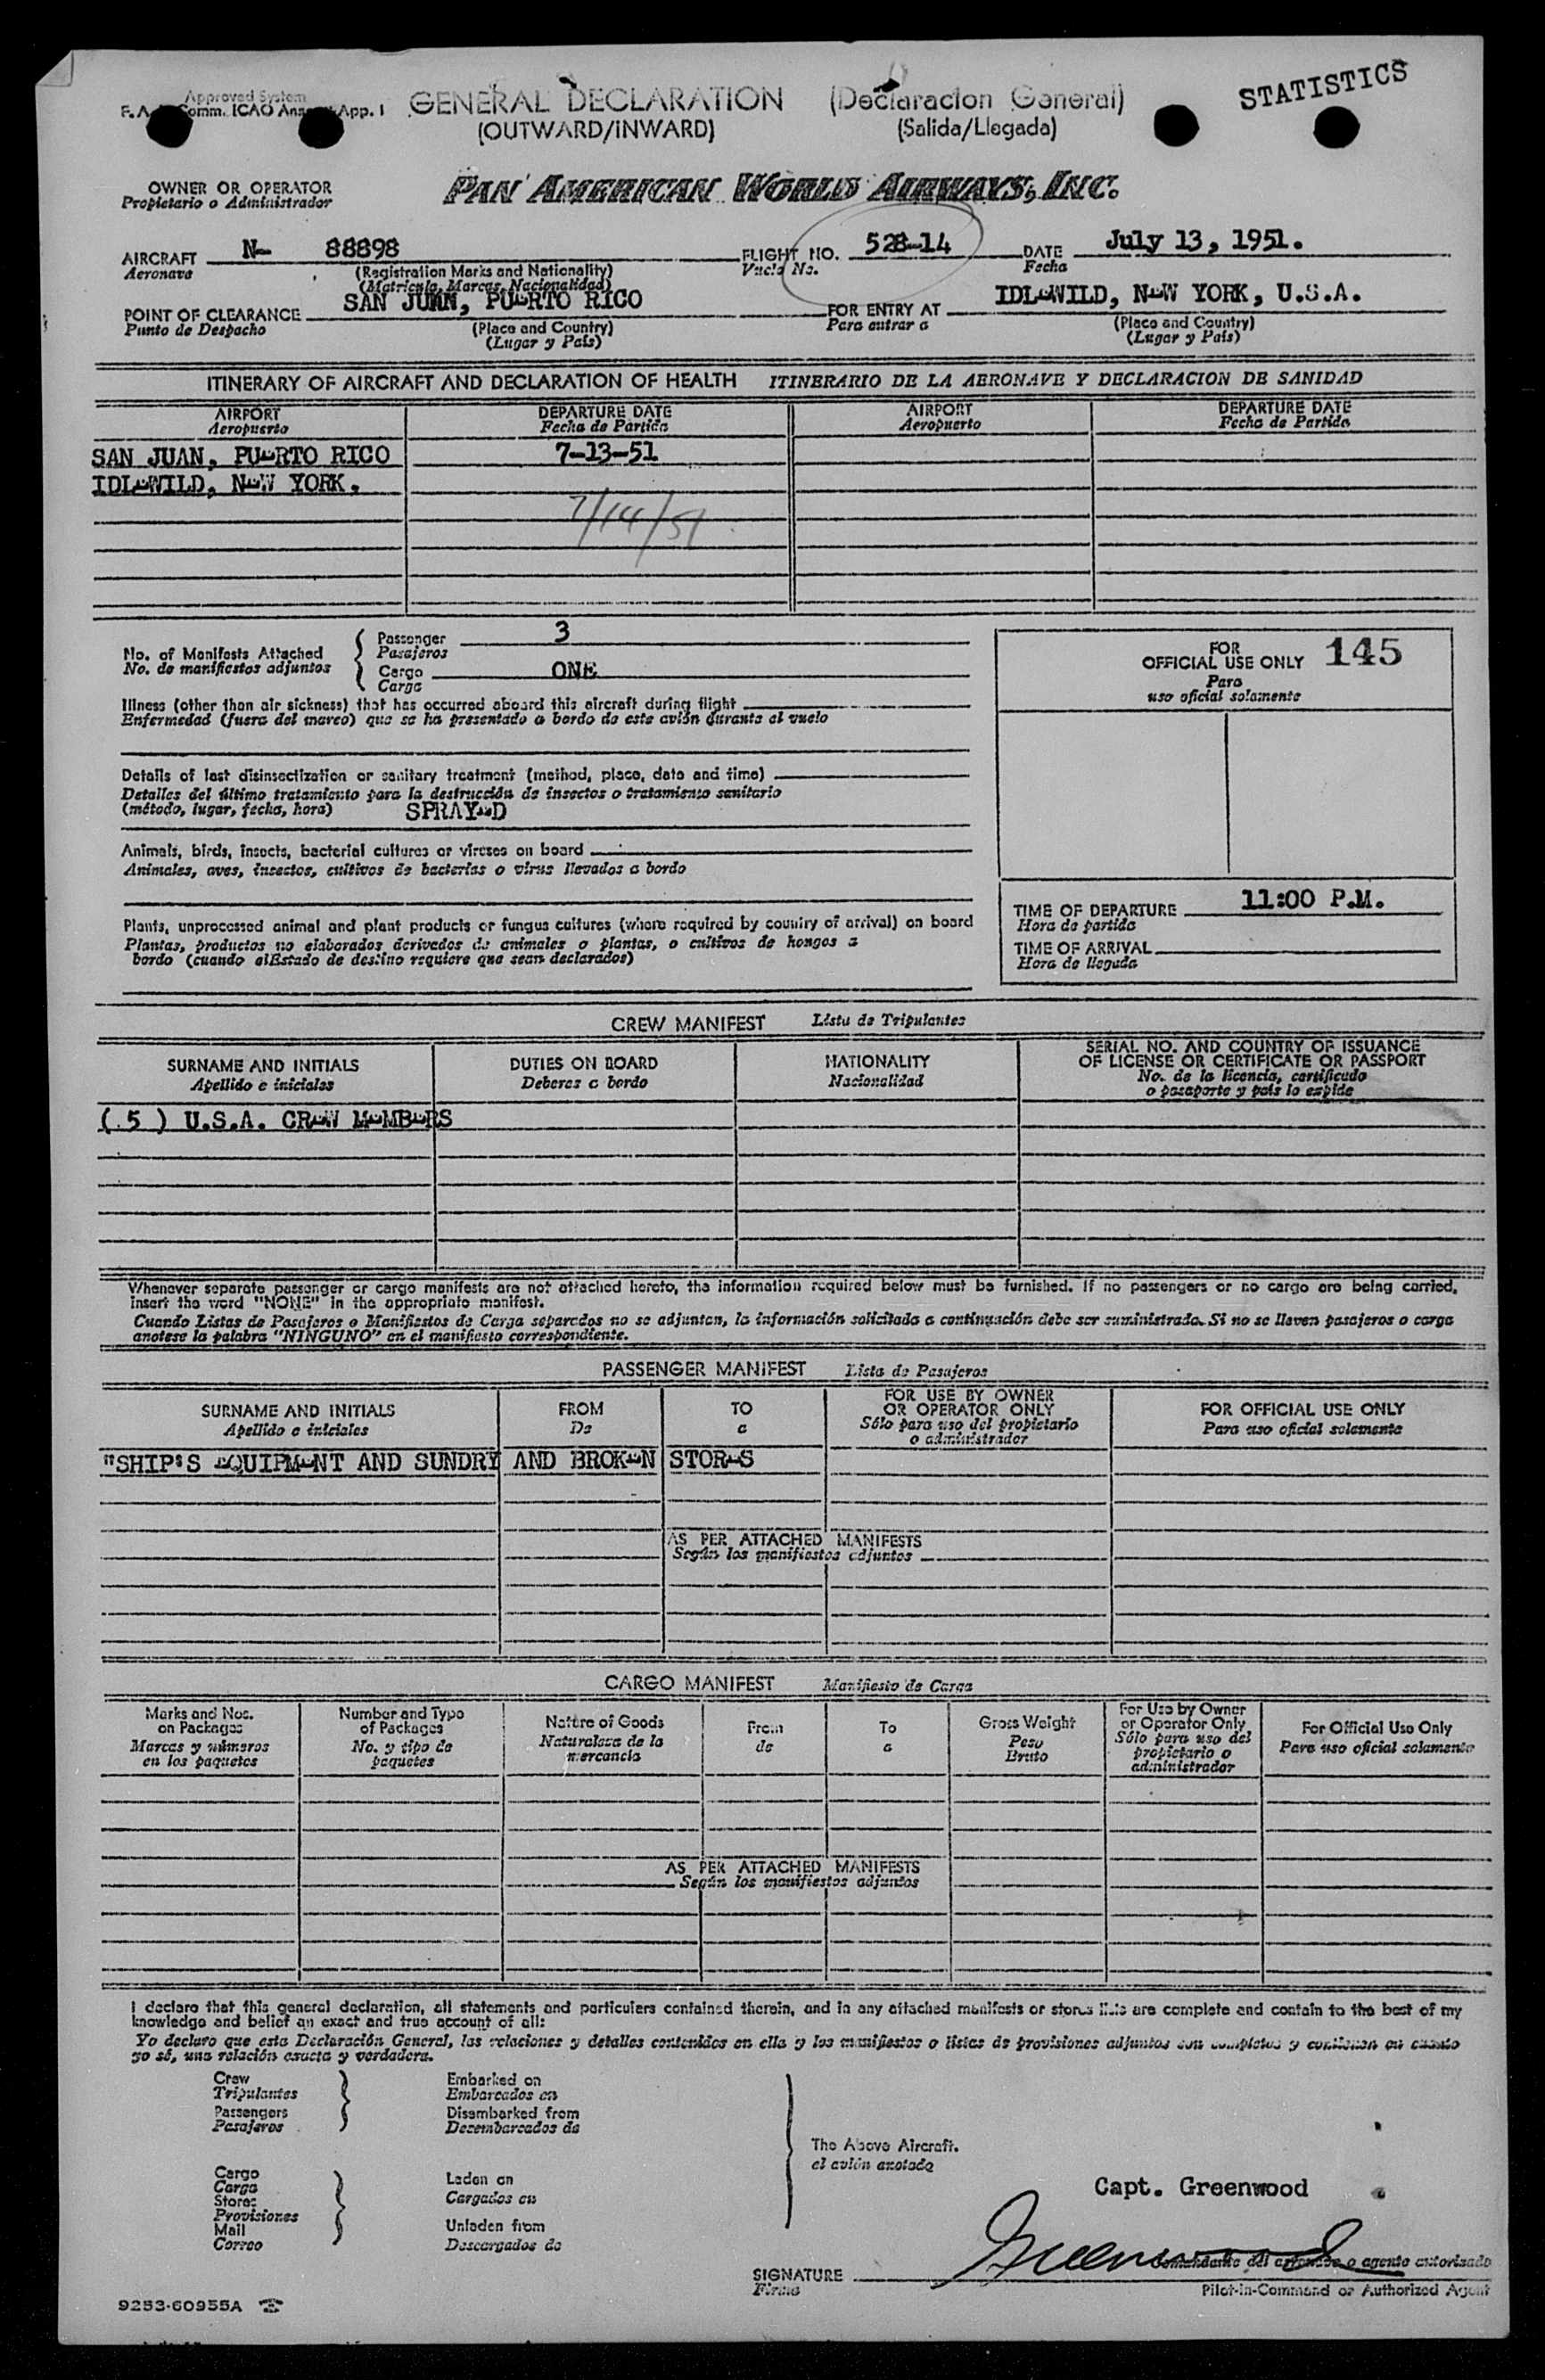 Approved System
Comm. ICAO App. I
GENERAL DECLARATION (Declaracion General)
(OUTWARD/INWARD) (Salida/Llegada)
STATISTICS
OWNER OR OPERATOR
Propietario o Administrador
PAN AMERICAN WORLD AIRWAYS, INC.
AIRCRAFT N- 88898 FLIGHT NO. 528-14 DATE July 13, 1951.
Aeronave (Registration Marks and Nationality) Vuelo No. Fecha
(Matricula, Marcas, Nacionalidad)
POINT OF CLEARANCE SAN JUAN, PUERTO RICO FOR ENTRY AT IDLEWILD, NEW YORK, U.S.A.
Punto de Despacho (Place and Country) Para entrar a (Place and Country)
(Lugar y País) (Lugar y País)
ITINERARY OF AIRCRAFT AND DECLARATION OF HEALTH ITINERARIO DE LA AERONAVE Y DECLARACION DE SANIDAD
AIRPORT DEPARTURE DATE AIRPORT DEPARTURE DATE
Aeropuerto Fecha de Partida Aeropuerto Fecha de Partida
SAN JUAN, PUERTO RICO 7-13-51
IDLEWILD, NEW YORK.
7/14/51
No. of Manifests Attached
No. de manifiestos adjuntos
Passenger 3
Pasajeros
Cargo ONE
Carga
Illness (other than air sickness) that has occurred aboard this aircraft during flight
Enfermedad (fuera del mareo) que se ha presentado a bordo de este avión durante el vuelo
Details of last disinsectization or sanitary treatment (method, place, date and time)
Detalles del último tratamiento para la destrucción de insectos o tratamiento sanitario
(método, lugar, fecha, hora) SPRAYED
Animals, birds, insects, bacterial cultures or viruses on board
Animales, aves, insectos, cultivos de bacterias o virus llevados a bordo
Plants, unprocessed animal and plant products or fungus cultures (where required by country of arrival) on board
Plantas, productos no elaborados derivados de animales o plantas, o cultivos de hongos a
bordo (cuando el Estado de destino requiere que sean declarados)
FOR
OFFICIAL USE ONLY 145
Para
uso oficial solamente
TIME OF DEPARTURE 11:00 P.M.
Hora de partida
TIME OF ARRIVAL
Hora de llegada
CREW MANIFEST Lista de Tripulantes
SURNAME AND INITIALS DUTIES ON BOARD NATIONALITY SERIAL NO. AND COUNTRY OF ISSUANCE
OF LICENSE OR CERTIFICATE OR PASSPORT
Apellido e iniciales Deberes a bordo Nacionalidad No. de la licencia, certificado
o pasaporte y país lo expide
( 5 ) U.S.A. CREW MEMBERS
Whenever separate passenger or cargo manifests are not attached hereto, the information required below must be furnished. If no passengers or no cargo are being carried,
insert the word "NONE" in the appropriate manifest.
Cuando Listas de Pasajeros o Manifiestos de Carga separados no se adjuntan, la información solicitada a continuación debe ser suministrada. Si no se lleven pasajeros o carga
anotese la palabra "NINGUNO" en el manifiesto correspondiente.
PASSENGER MANIFEST Lista de Pasajeros
SURNAME AND INITIALS FROM TO FOR USE BY OWNER FOR OFFICIAL USE ONLY
OR OPERATOR ONLY
Apellido e iniciales De a Sólo para uso del propietario Para uso oficial solamente
o administrador
"SHIP'S EQUIPMENT AND SUNDRY AND BROKEN STORES
AS PER ATTACHED MANIFESTS
Según los manifiestos adjuntos
CARGO MANIFEST Manifiesto de Carga
Marks and Nos. Number and Type Nature of Goods From To Gross Weight For Use by Owner For Official Use Only
on Packages of Packages or Operator Only
Marcas y números No. y tipo de Naturaleza de la de a Peso Sólo para uso del Para uso oficial solamente
en los paquetes paquetes mercancía Bruto propietario o
administrador
AS PER ATTACHED MANIFESTS
Según los manifiestos adjuntos
I declare that this general declaration, all statements and particulars contained therein, and in any attached manifests or stores lists are complete and contain to the best of my
knowledge and belief an exact and true account of all:
Yo declaro que esta Declaración General, las relaciones y detalles contenidos en ella y los manifiestos o listas de provisiones adjuntos son completos y contienen en cuanto
yo sé, una relación exacta y verdadera.
Crew Embarked on
Tripulantes Embarcados en
Passengers Disembarked from
Pasajeros Desembarcados de
The Above Aircraft.
el avión anotado
Cargo Laden on
Carga Cargados en
Stores
Provisiones
Mail Unladen from
Correo Descargados de
Capt. Greenwood
SIGNATURE Greenwood
Firma
Comandante del aeronave o agente autorizado
Pilot-in-Command or Authorized Agent
9253-60955A